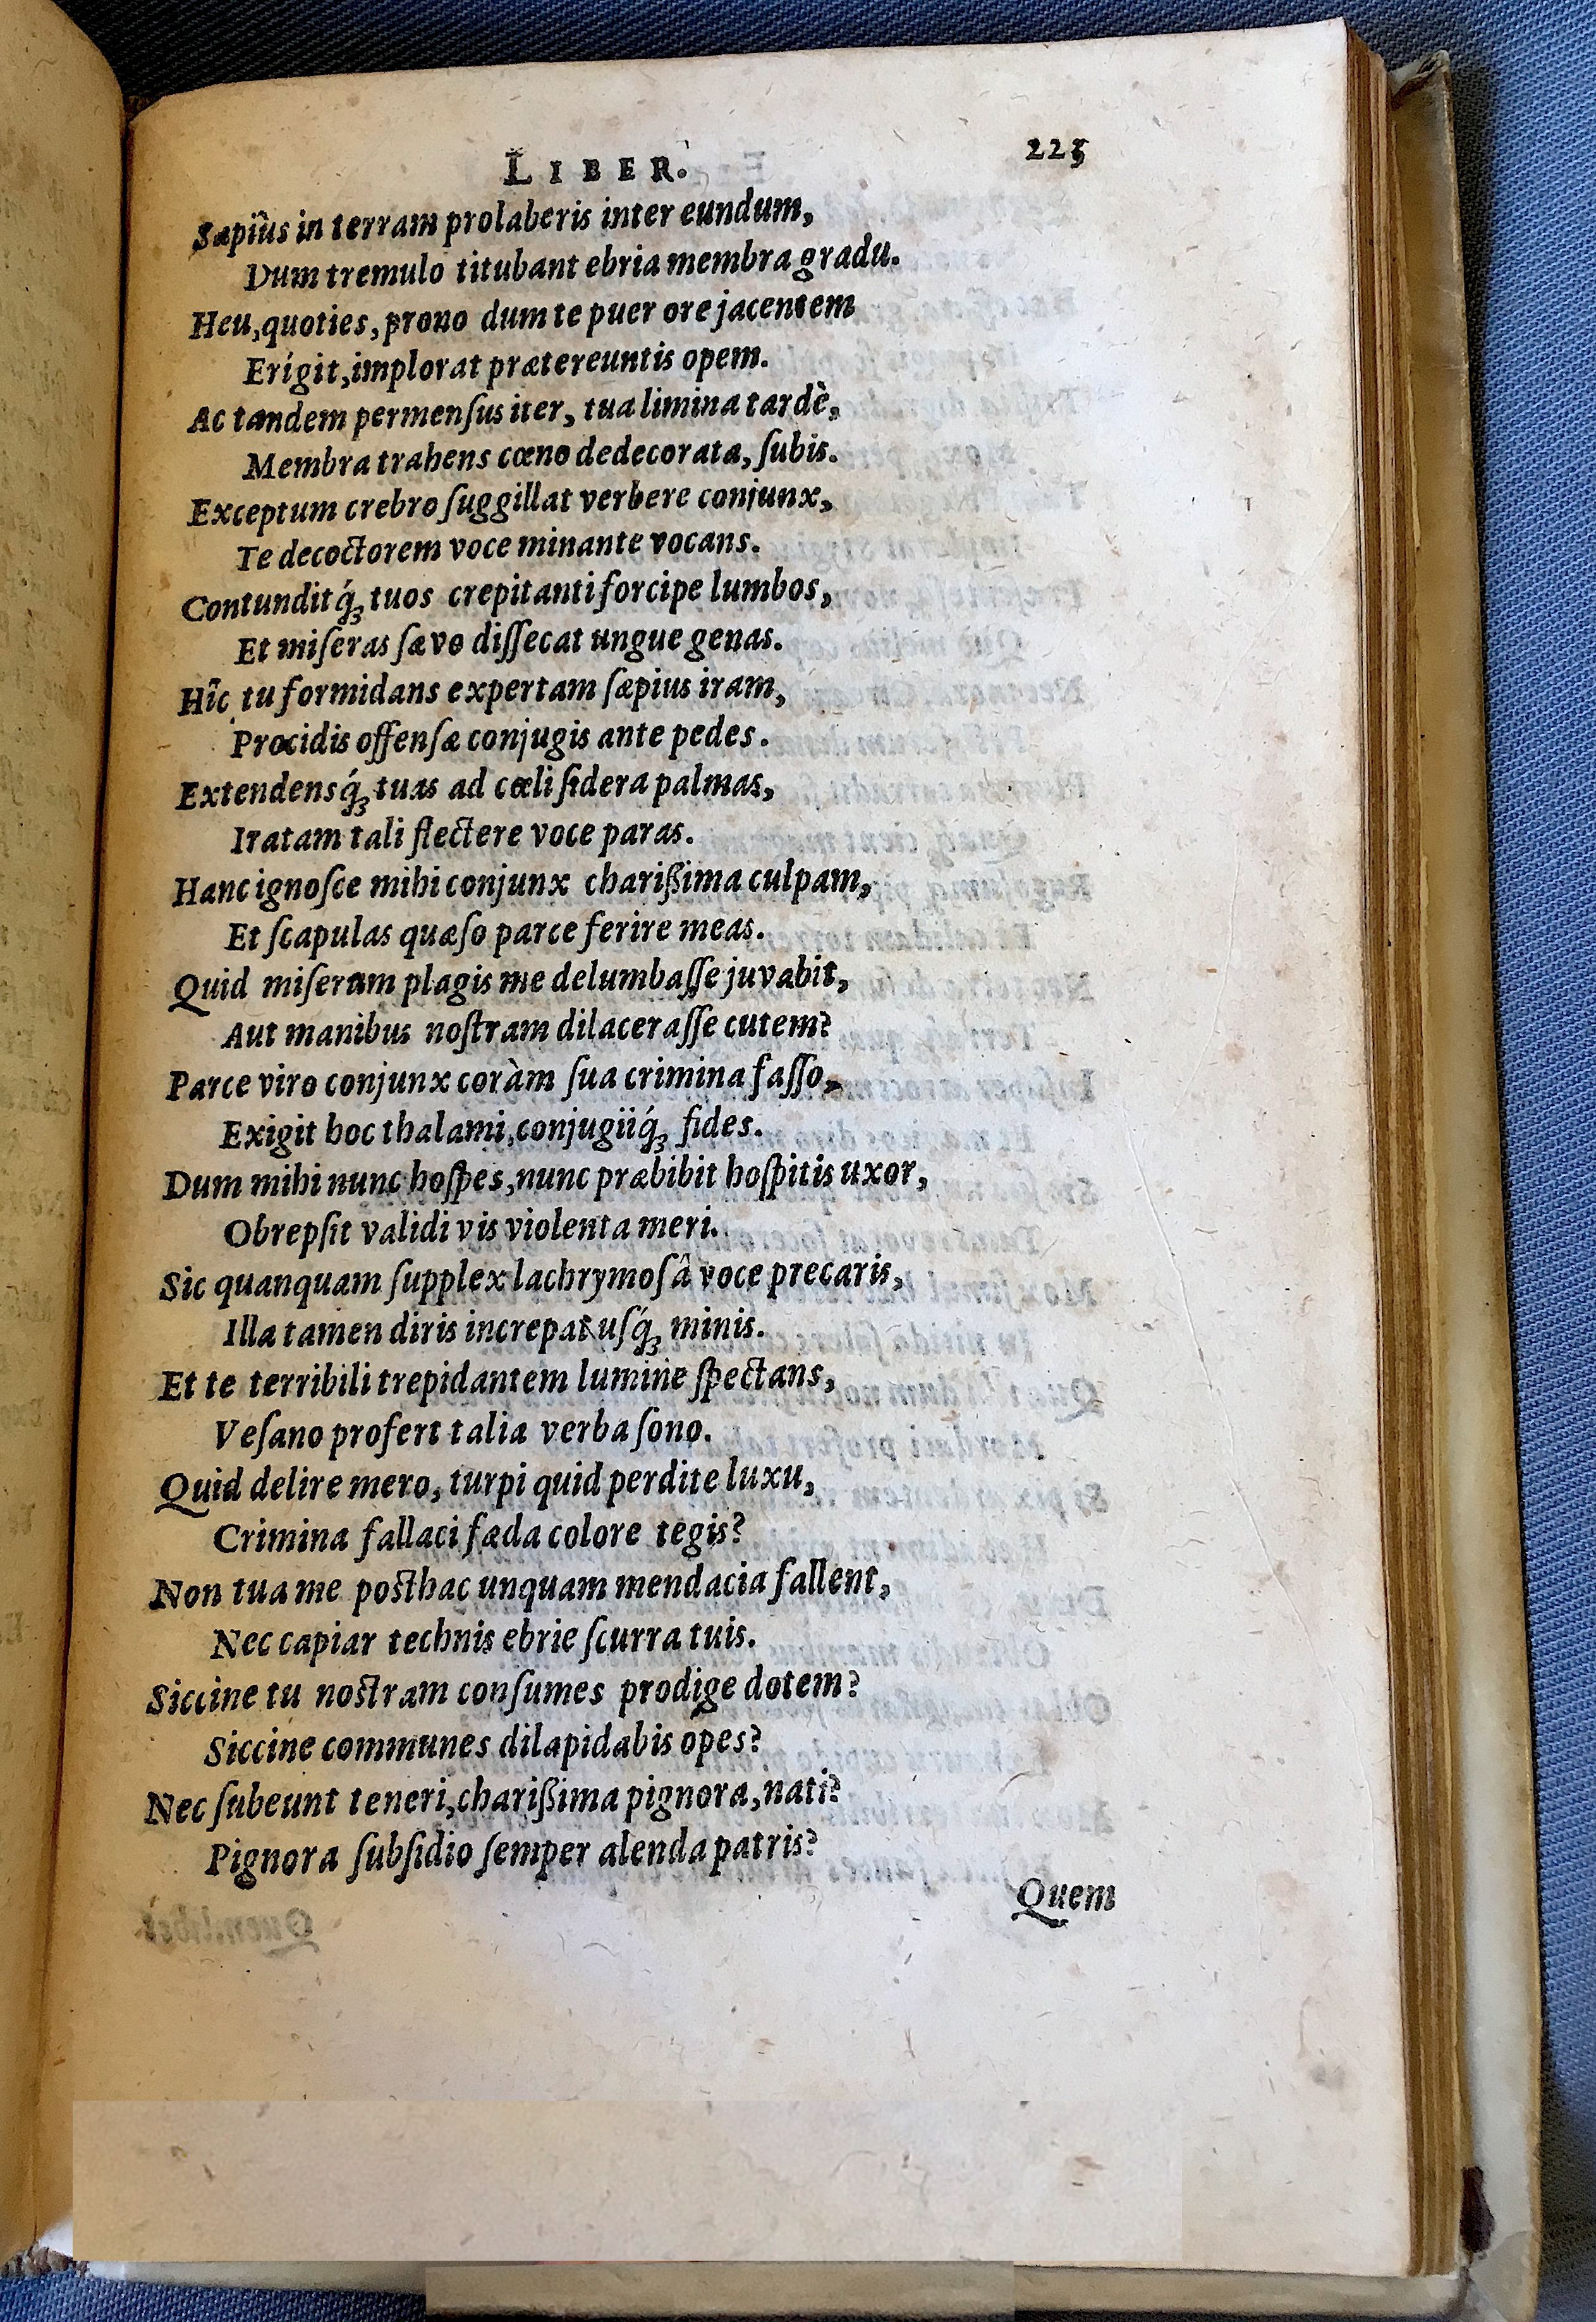 LIBER. 225
Sæpiûs in terram prolaberis inter eundum,
Dum tremulo titubant ebria membra gradu.
Heu, quoties, prono dum te puer ore jacentem
Erigit, implorat prætereuntis opem.
Ac tandem permenſus iter, tua limina tardè,
Membra trahens cœno dedecorata, ſubis.
Exceptum crebro ſuggillat verbere conjunx,
Te decoctorem voce minante vocans.
Contunditq́ꝫ tuos crepitanti forcipe lumbos,
Et miſeras ſævo diſſecat ungue genas.
Hîc tu formidans expertam ſæpius iram,
Procidis offenſæ conjugis ante pedes.
Extendensq́ꝫ tuas ad cœli ſidera palmas,
Iratam tali flectere voce paras.
Hanc ignoſce mihi conjunx charißima culpam,
Et ſcapulas quæſo parce ferire meas.
Quid miſerum plagis me delumbaſſe juvabit,
Aut manibus noſtram dilaceraſſe cutem?
Parce viro conjunx coràm ſua crimina faſſo,
Exigit hoc thalami, conjugiiq́ꝫ fides.
Dum mihi nunc hoſpes, nunc præbibit hoſpitis uxor,
Obrepſit validi vis violenta meri.
Sic quanquam ſupplex lachrymoſâ voce precaris,
Illa tamen diris increpat uſq́ꝫ minis.
Et te terribili trepidantem lumine ſpectans,
Veſano profert talia verba ſono.
Quid delire mero, turpi quid perdite luxu,
Crimina fallaci fæda colore tegis?
Non tua me poſthac unquam mendacia fallent,
Nec capiar technis ebrie ſcurra tuis.
Siccine tu noſtram conſumes prodige dotem?
Siccine communes dilapidabis opes?
Nec ſubeunt teneri, charißima pignora, nati?
Pignora ſubſidio ſemper alenda patris?
Quem